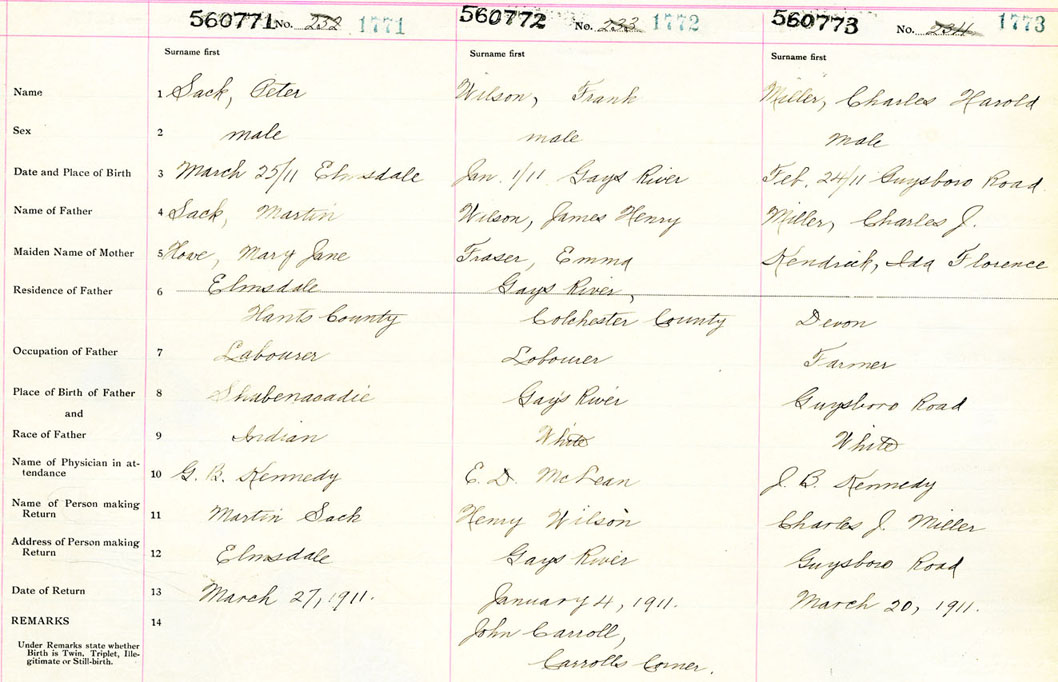 560771 No. 232 1771 560772 No. 233 1772 560773 No. 234 1773
Surname first Surname first Surname first
Name 1 Sack, Peter Wilson, Frank Miller, Charles Harold
Sex 2 male male male
Date and Place of Birth 3 March 25/11 Elmsdale Jan. 1/11 Gays River Feb. 24/11 Guysboro Road
Name of Father 4 Sack, Martin Wilson, James Henry Miller, Charles J.
Maiden Name of Mother 5 Hove, Mary Jane Fraser, Emma Kendrick, Ida Florence
Residence of Father 6 Elmsdale Gays River,
Hants County Colchester County Devon
Occupation of Father 7 Labourer Lobourer Farmer
Place of Birth of Father 8 Shabenacadie Gays River Guysboro Road
and
Race of Father 9 Indian White White
Name of Physician in at-
tendance 10 G. B. Kennedy E. D. McLean J. B. Kennedy
Name of Person making
Return 11 Martin Sack Henry Wilson Charles J. Miller
Address of Person making
Return 12 Elmsdale Gays River Guysboro Road
Date of Return 13 March 27, 1911. January 4, 1911. March 20, 1911.
REMARKS 14 John Carroll,
Under Remarks state whether
Birth is Twin, Triplet, Ille-
gitimate or Still-birth.
Carrolls Corner.